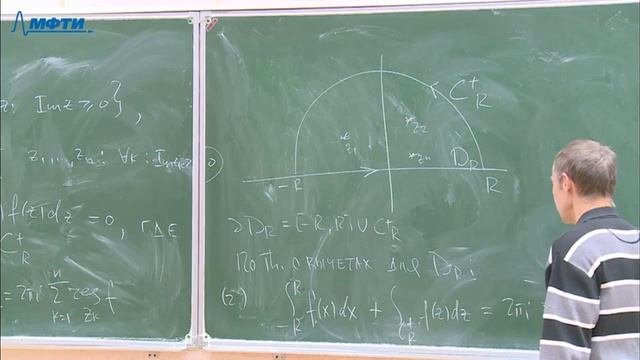 МФТИ
z: Im z ≥ 0},
z₁,...,zₙ: ∀k: Im zₖ > 0
f(z)dz = 0, ГДЕ
C⁺_R
= 2πi Σ_{k=1}^{n} res_{zₖ} f
C⁺_R
*z₁
*z₂
*zₙ
D_R
-R
R
∂D_R = [-R, R] ∪ C⁺_R
ПО ТН. О ВЫЧЕТАХ ДЛЯ D_R:
(2) ∫_{-R}^{R} f(x)dx + ∫_{C⁺_R} f(z)dz = 2πi